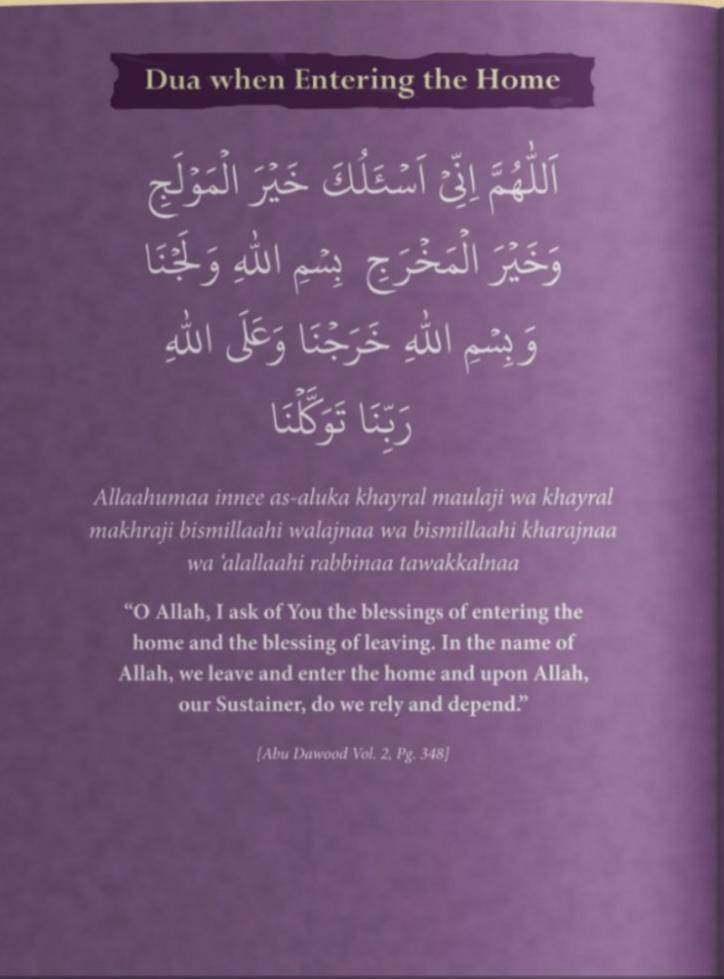 Dua when Entering the Home
اَللّٰهُمَّ اِنِّيْ اَسْئَلُكَ خَيْرَ الْمَوْلَجِ
وَخَيْرَ الْمَخْرَجِ بِسْمِ اللهِ وَلَجْنَا
وَ بِسْمِ اللهِ خَرَجْنَا وَعَلَى اللهِ
رَبِّنَا تَوَكَّلْنَا
Allaahumaa innee as-aluka khayral maulaji wa khayral
makhraji bismillaahi walajnaa wa bismillaahi kharajnaa
wa ‘alallaahi rabbinaa tawakkalnaa
“O Allah, I ask of You the blessings of entering the
home and the blessing of leaving. In the name of
Allah, we leave and enter the home and upon Allah,
our Sustainer, do we rely and depend.”
[Abu Dawood Vol. 2, Pg. 348]